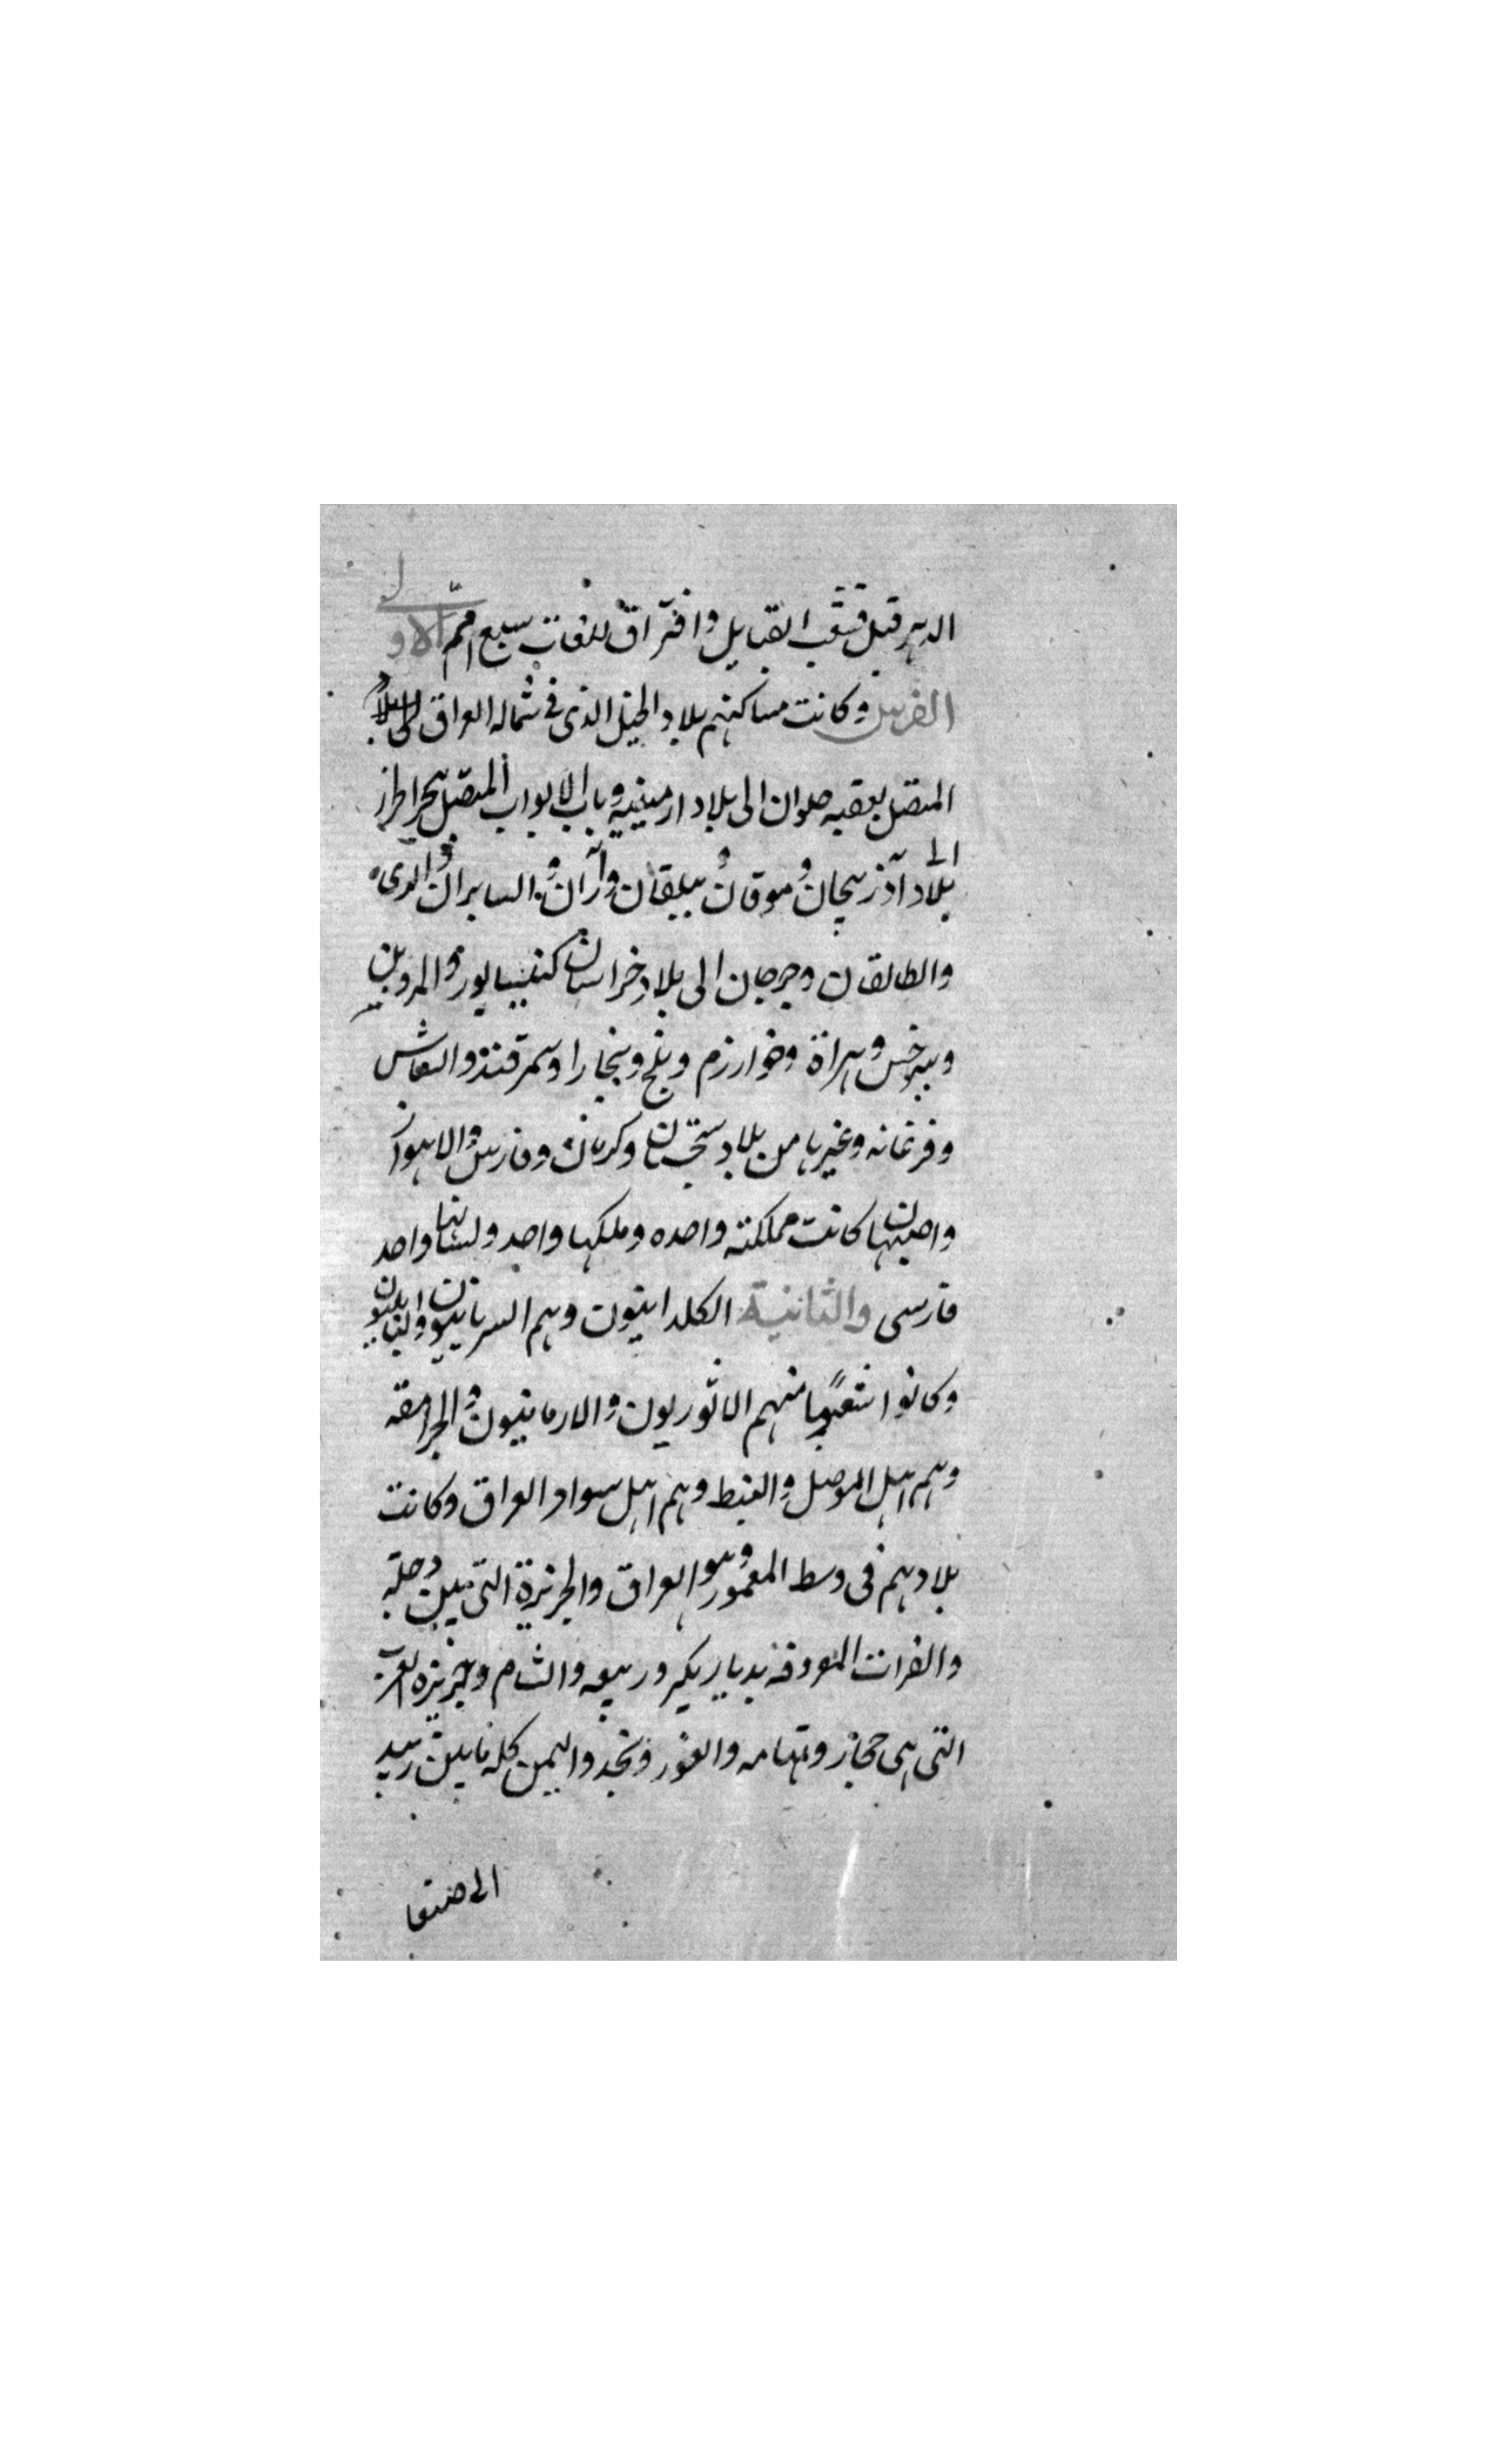 الدهر قبل تشعب القبايل وافتراق للغات سبع امم الاولى
الفرس وكانت مساكنهم بلاد الجبل الذى فى شماله العراق
المتصل بعقبه حلوان الى بلاد ارمينيه وباب الابواب المتصل ببحر اطراز
الى بلاد آذربيجان وموقان وبيلقان وآران والسابران والرى
والطالقان وجرجان الى بلاد خراسان كنيسابور والمروين
وسرخس وهراة وخوارزم وبلخ وبخارا وسمرقند والشاش
وفرغانه وغيرها من بلاد سجستان وكرمان وفارس والاهواز
واصبهان كانت مملكته واحده وملكها واحد ولسانها واحد
فارسى والثانية الكلدانيون وهم السريانيون والبابليون
وكانوا شعوبا منهم الاثوريون والارمانيون والجرامقه
وهم اهل الموصل والنبط وهم اهل سواد العراق وكانت
بلادهم فى وسط المعمور وهو العراق والجزيرة التى بين دجله
والفرات المعروفه بديار بكر وربيعه والشام وجزيره العرب
التى هى حجاز وتهامه والغور ونجد واليمن كله مابين زبيد
الى صنعا